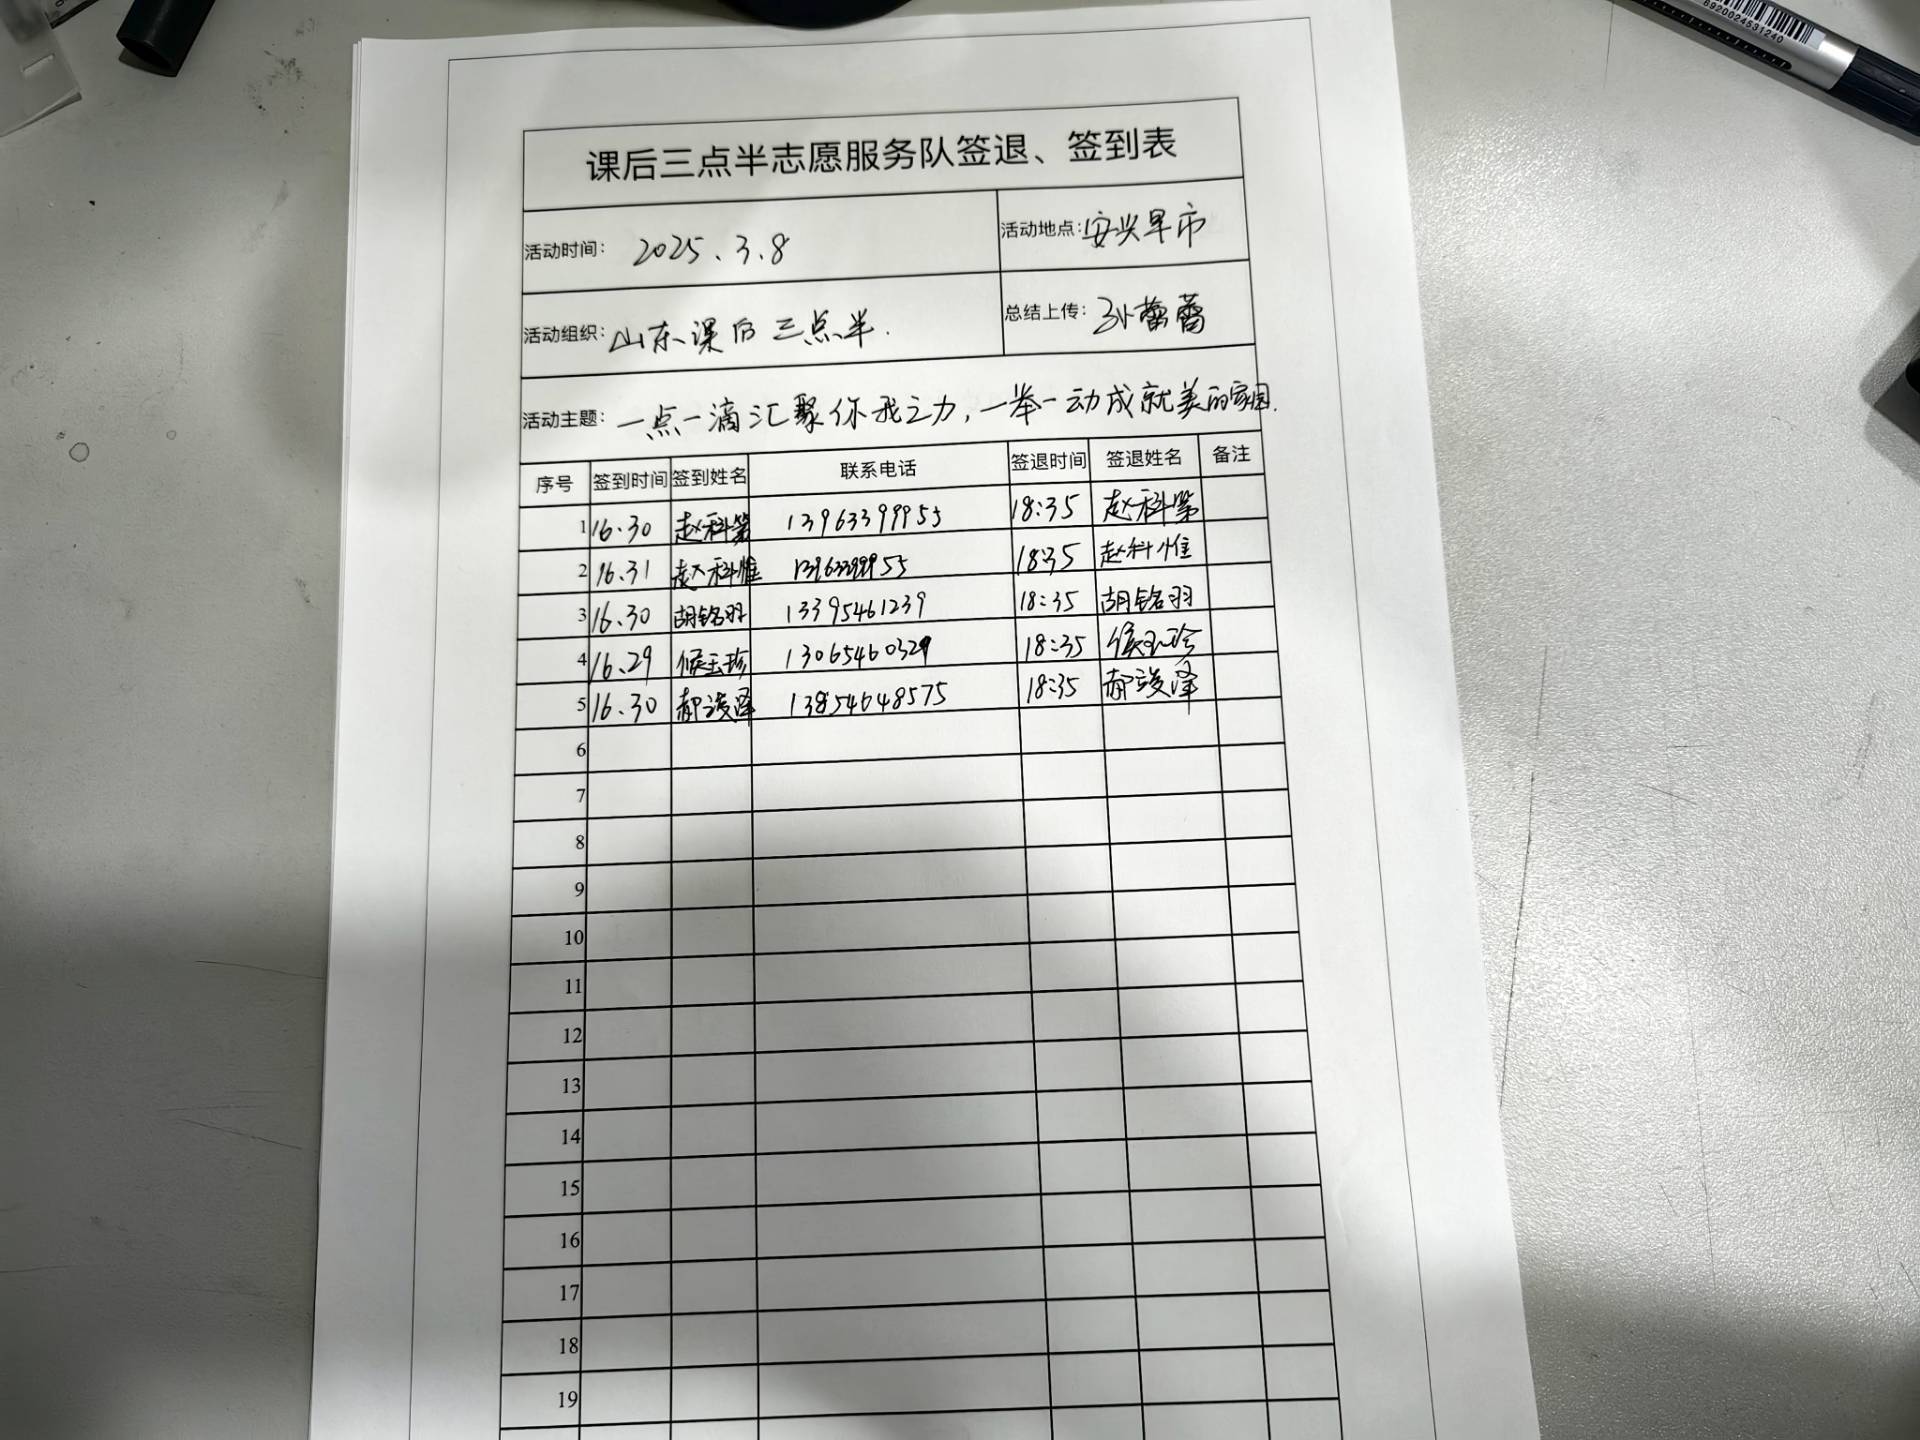 课后三点半志愿服务队签退、签到表
活动时间: 2025.3.8 活动地点:安兴早市
活动组织:山东课后三点半. 总结上传:孙蕾蕾
活动主题: 一点一滴汇聚你我之力,一举一动成就美的家园.
序号 签到时间 签到姓名 联系电话 签退时间 签退姓名 备注
1 16.30 赵科第 13963399955 18:35 赵科第
2 16.31 赵科惟 13963399955 18:35 赵科惟
3 16.30 胡铭羽 13395461239 18:35 胡铭羽
4 16.29 候玉珍 13065460329 18:35 侯玉珍
5 16.30 郝浚泽 13854648575 18:35 郝浚泽
6
7
8
9
10
11
12
13
14
15
16
17
18
19
6920024531240